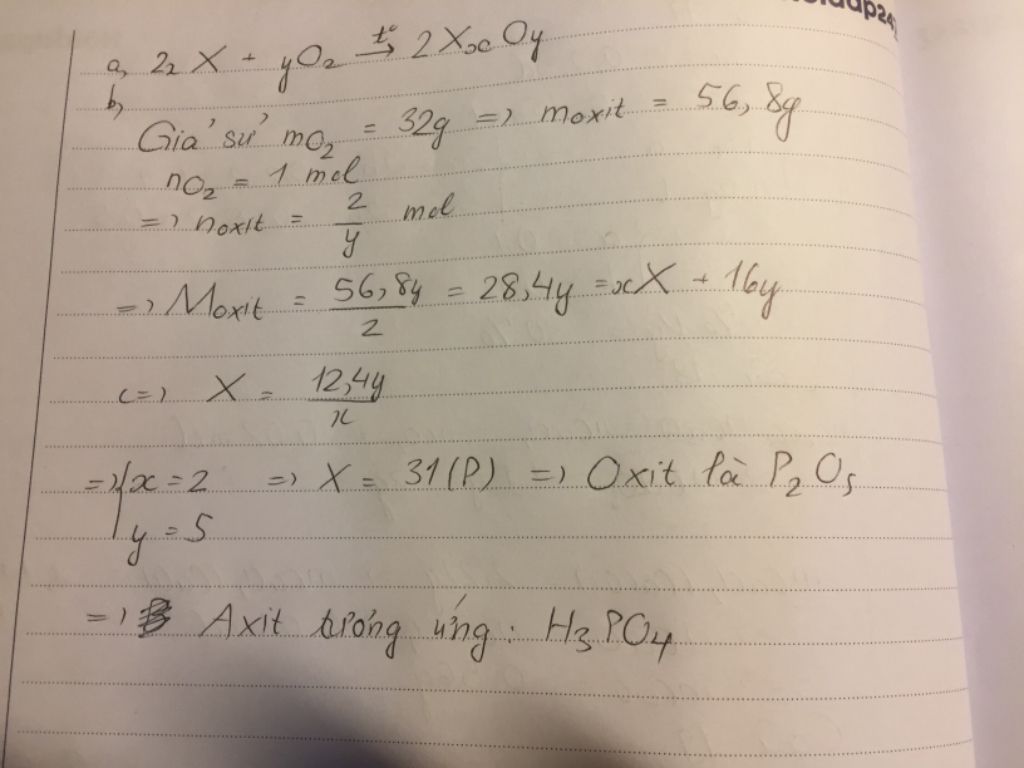 a, 2x X + yO2 →(t°) 2XxOy
b,
Giả sử mO2 = 32g => moxit = 56,8g
nO2 = 1 mol
=> noxit = 2/y mol
=> Moxit = 56,8y/2 = 28,4y = xX + 16y
<=> X = 12,4y/x
=> { x = 2 => X = 31(P) => Oxit là P2O5
y = 5
=> Axit tương ứng : H3PO4